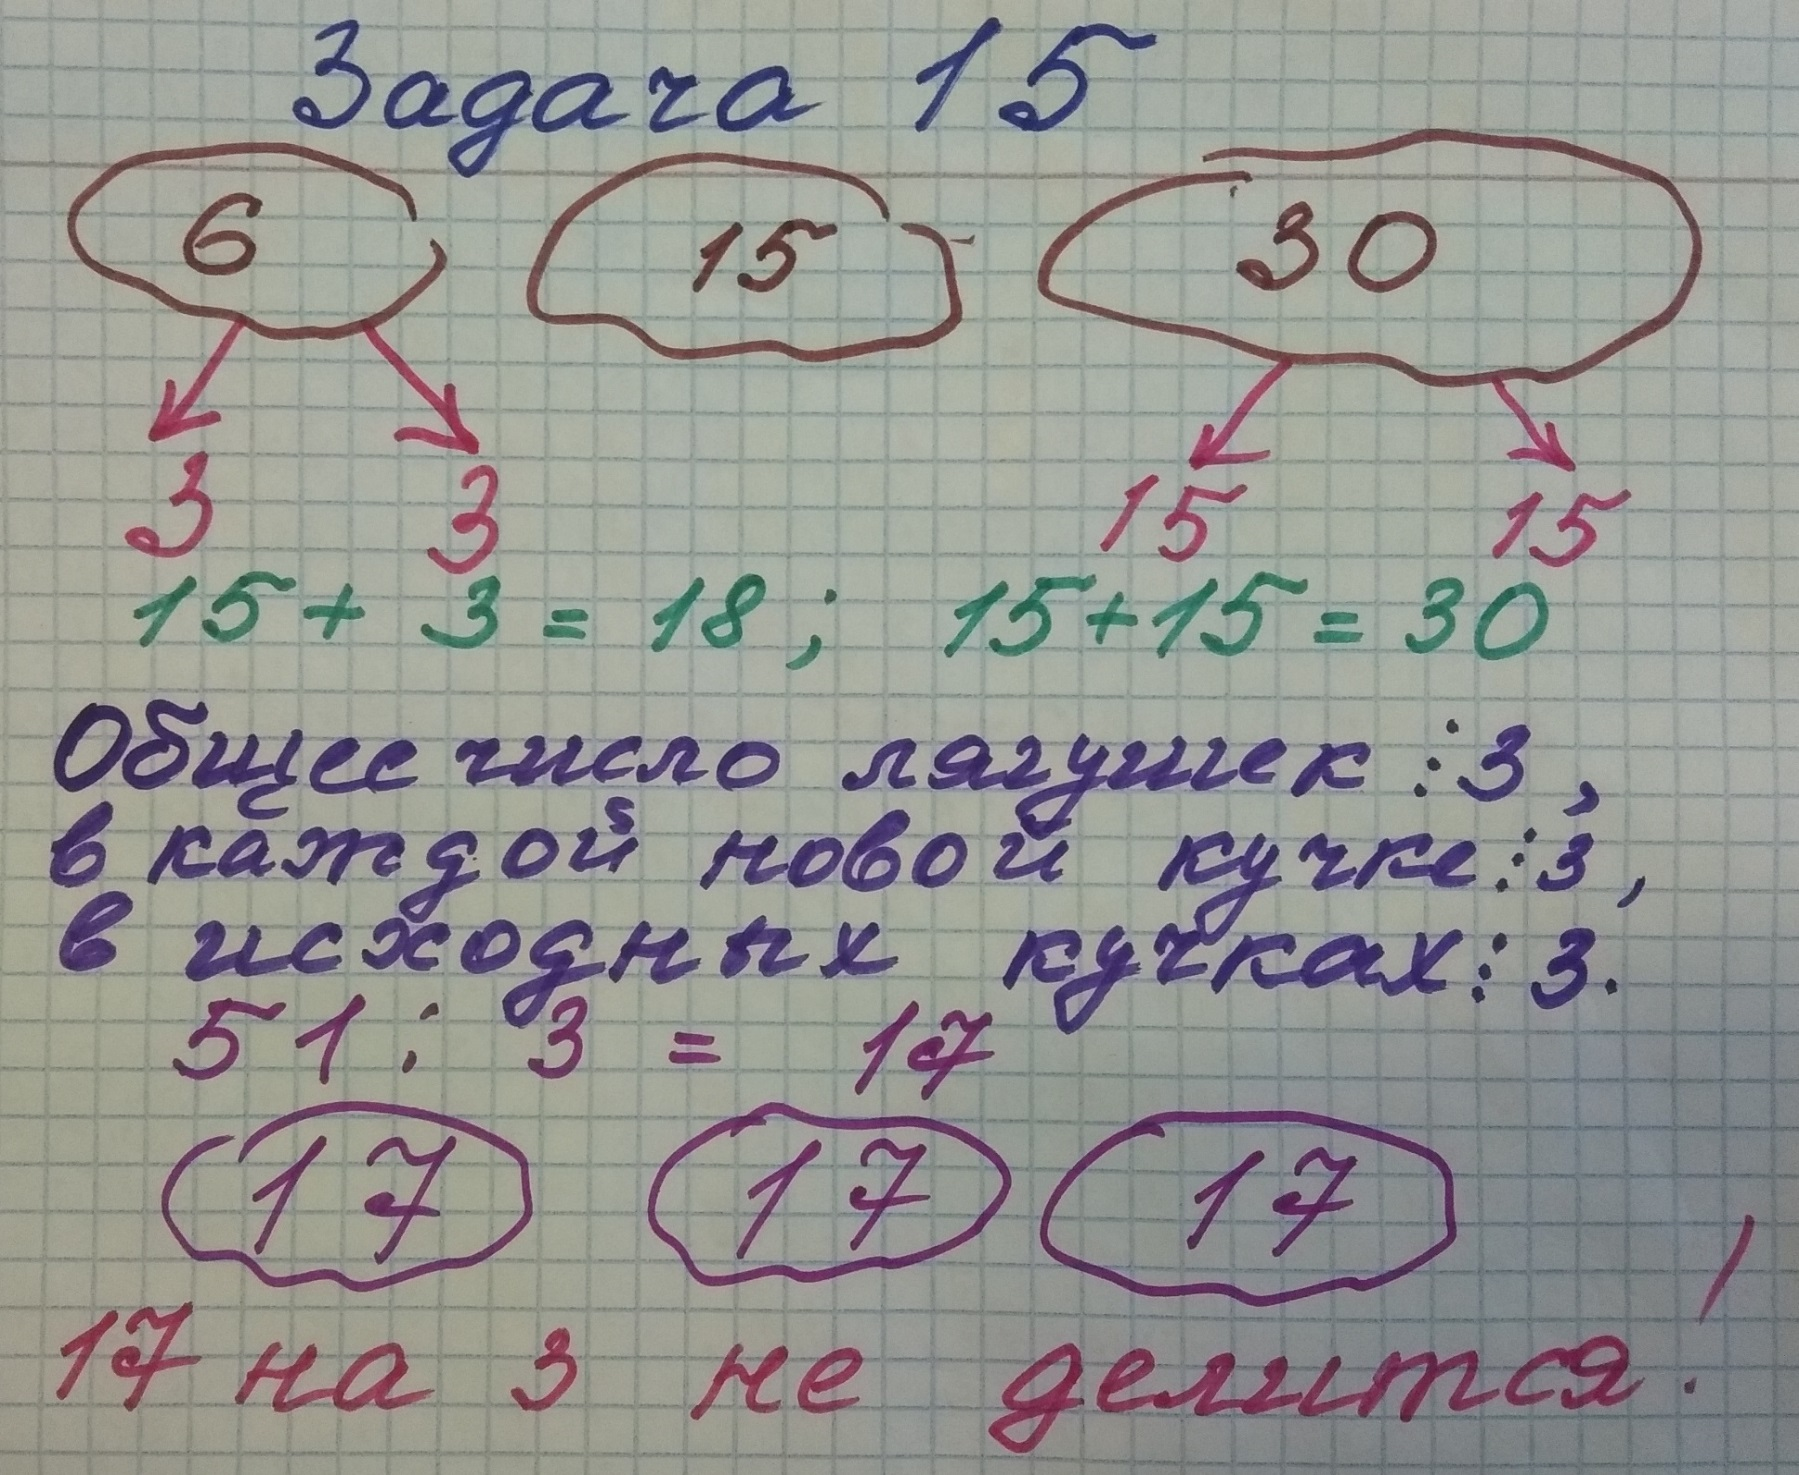 Задача 15
6 15 30
3 3 15 15
15 + 3 = 18; 15+15 = 30
Общее число лягушек ⋮ 3,
в каждой новой кучке ⋮ 3,
в исходных кучках ⋮ 3.
51 : 3 = 17
17 17 17
17 на 3 не делится!